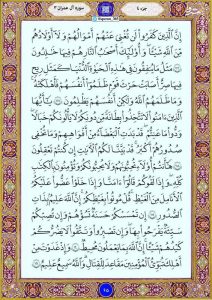 جزء ٤
سورة آل عمران ٣
إِنَّ ٱلَّذِينَ كَفَرُوا۟ لَن تُغْنِىَ عَنْهُمْ أَمْوَٰلُهُمْ وَلَآ أَوْلَٰدُهُم
مِّنَ ٱللَّهِ شَيْـًٔا وَأُو۟لَٰٓئِكَ أَصْحَٰبُ ٱلنَّارِ هُمْ فِيهَا خَٰلِدُونَ
١١٦ مَثَلُ مَا يُنفِقُونَ فِى هَٰذِهِ ٱلْحَيَوٰةِ ٱلدُّنْيَا كَمَثَلِ رِيحٍ
فِيهَا صِرٌّ أَصَابَتْ حَرْثَ قَوْمٍ ظَلَمُوٓا۟ أَنفُسَهُمْ فَأَهْلَكَتْهُ
وَمَا ظَلَمَهُمُ ٱللَّهُ وَلَٰكِنْ أَنفُسَهُمْ يَظْلِمُونَ ١١٧ يَٰٓأَيُّهَا
ٱلَّذِينَ ءَامَنُوا۟ لَا تَتَّخِذُوا۟ بِطَانَةً مِّن دُونِكُمْ لَا يَأْلُونَكُمْ خَبَالًا
وَدُّوا۟ مَا عَنِتُّمْ قَدْ بَدَتِ ٱلْبَغْضَآءُ مِنْ أَفْوَٰهِهِمْ وَمَا تُخْفِى
صُدُورُهُمْ أَكْبَرُ قَدْ بَيَّنَّا لَكُمُ ٱلْـَٔايَٰتِ إِن كُنتُمْ تَعْقِلُونَ
١١٨ هَٰٓأَنتُمْ أُو۟لَآءِ تُحِبُّونَهُمْ وَلَا يُحِبُّونَكُمْ وَتُؤْمِنُونَ بِٱلْكِتَٰبِ
كُلِّهِۦ وَإِذَا لَقُوكُمْ قَالُوٓا۟ ءَامَنَّا وَإِذَا خَلَوْا۟ عَضُّوا۟ عَلَيْكُمُ
ٱلْأَنَامِلَ مِنَ ٱلْغَيْظِ قُلْ مُوتُوا۟ بِغَيْظِكُمْ إِنَّ ٱللَّهَ عَلِيمٌۢ بِذَاتِ
ٱلصُّدُورِ ١١٩ إِن تَمْسَسْكُمْ حَسَنَةٌ تَسُؤْهُمْ وَإِن تُصِبْكُمْ
سَيِّئَةٌ يَفْرَحُوا۟ بِهَا وَإِن تَصْبِرُوا۟ وَتَتَّقُوا۟ لَا يَضُرُّكُمْ
كَيْدُهُمْ شَيْـًٔا إِنَّ ٱللَّهَ بِمَا يَعْمَلُونَ مُحِيطٌ ١٢٠ وَإِذْ غَدَوْتَ مِنْ
أَهْلِكَ تُبَوِّئُ ٱلْمُؤْمِنِينَ مَقَٰعِدَ لِلْقِتَالِ وَٱللَّهُ سَمِيعٌ عَلِيمٌ ١٢١
٦٥